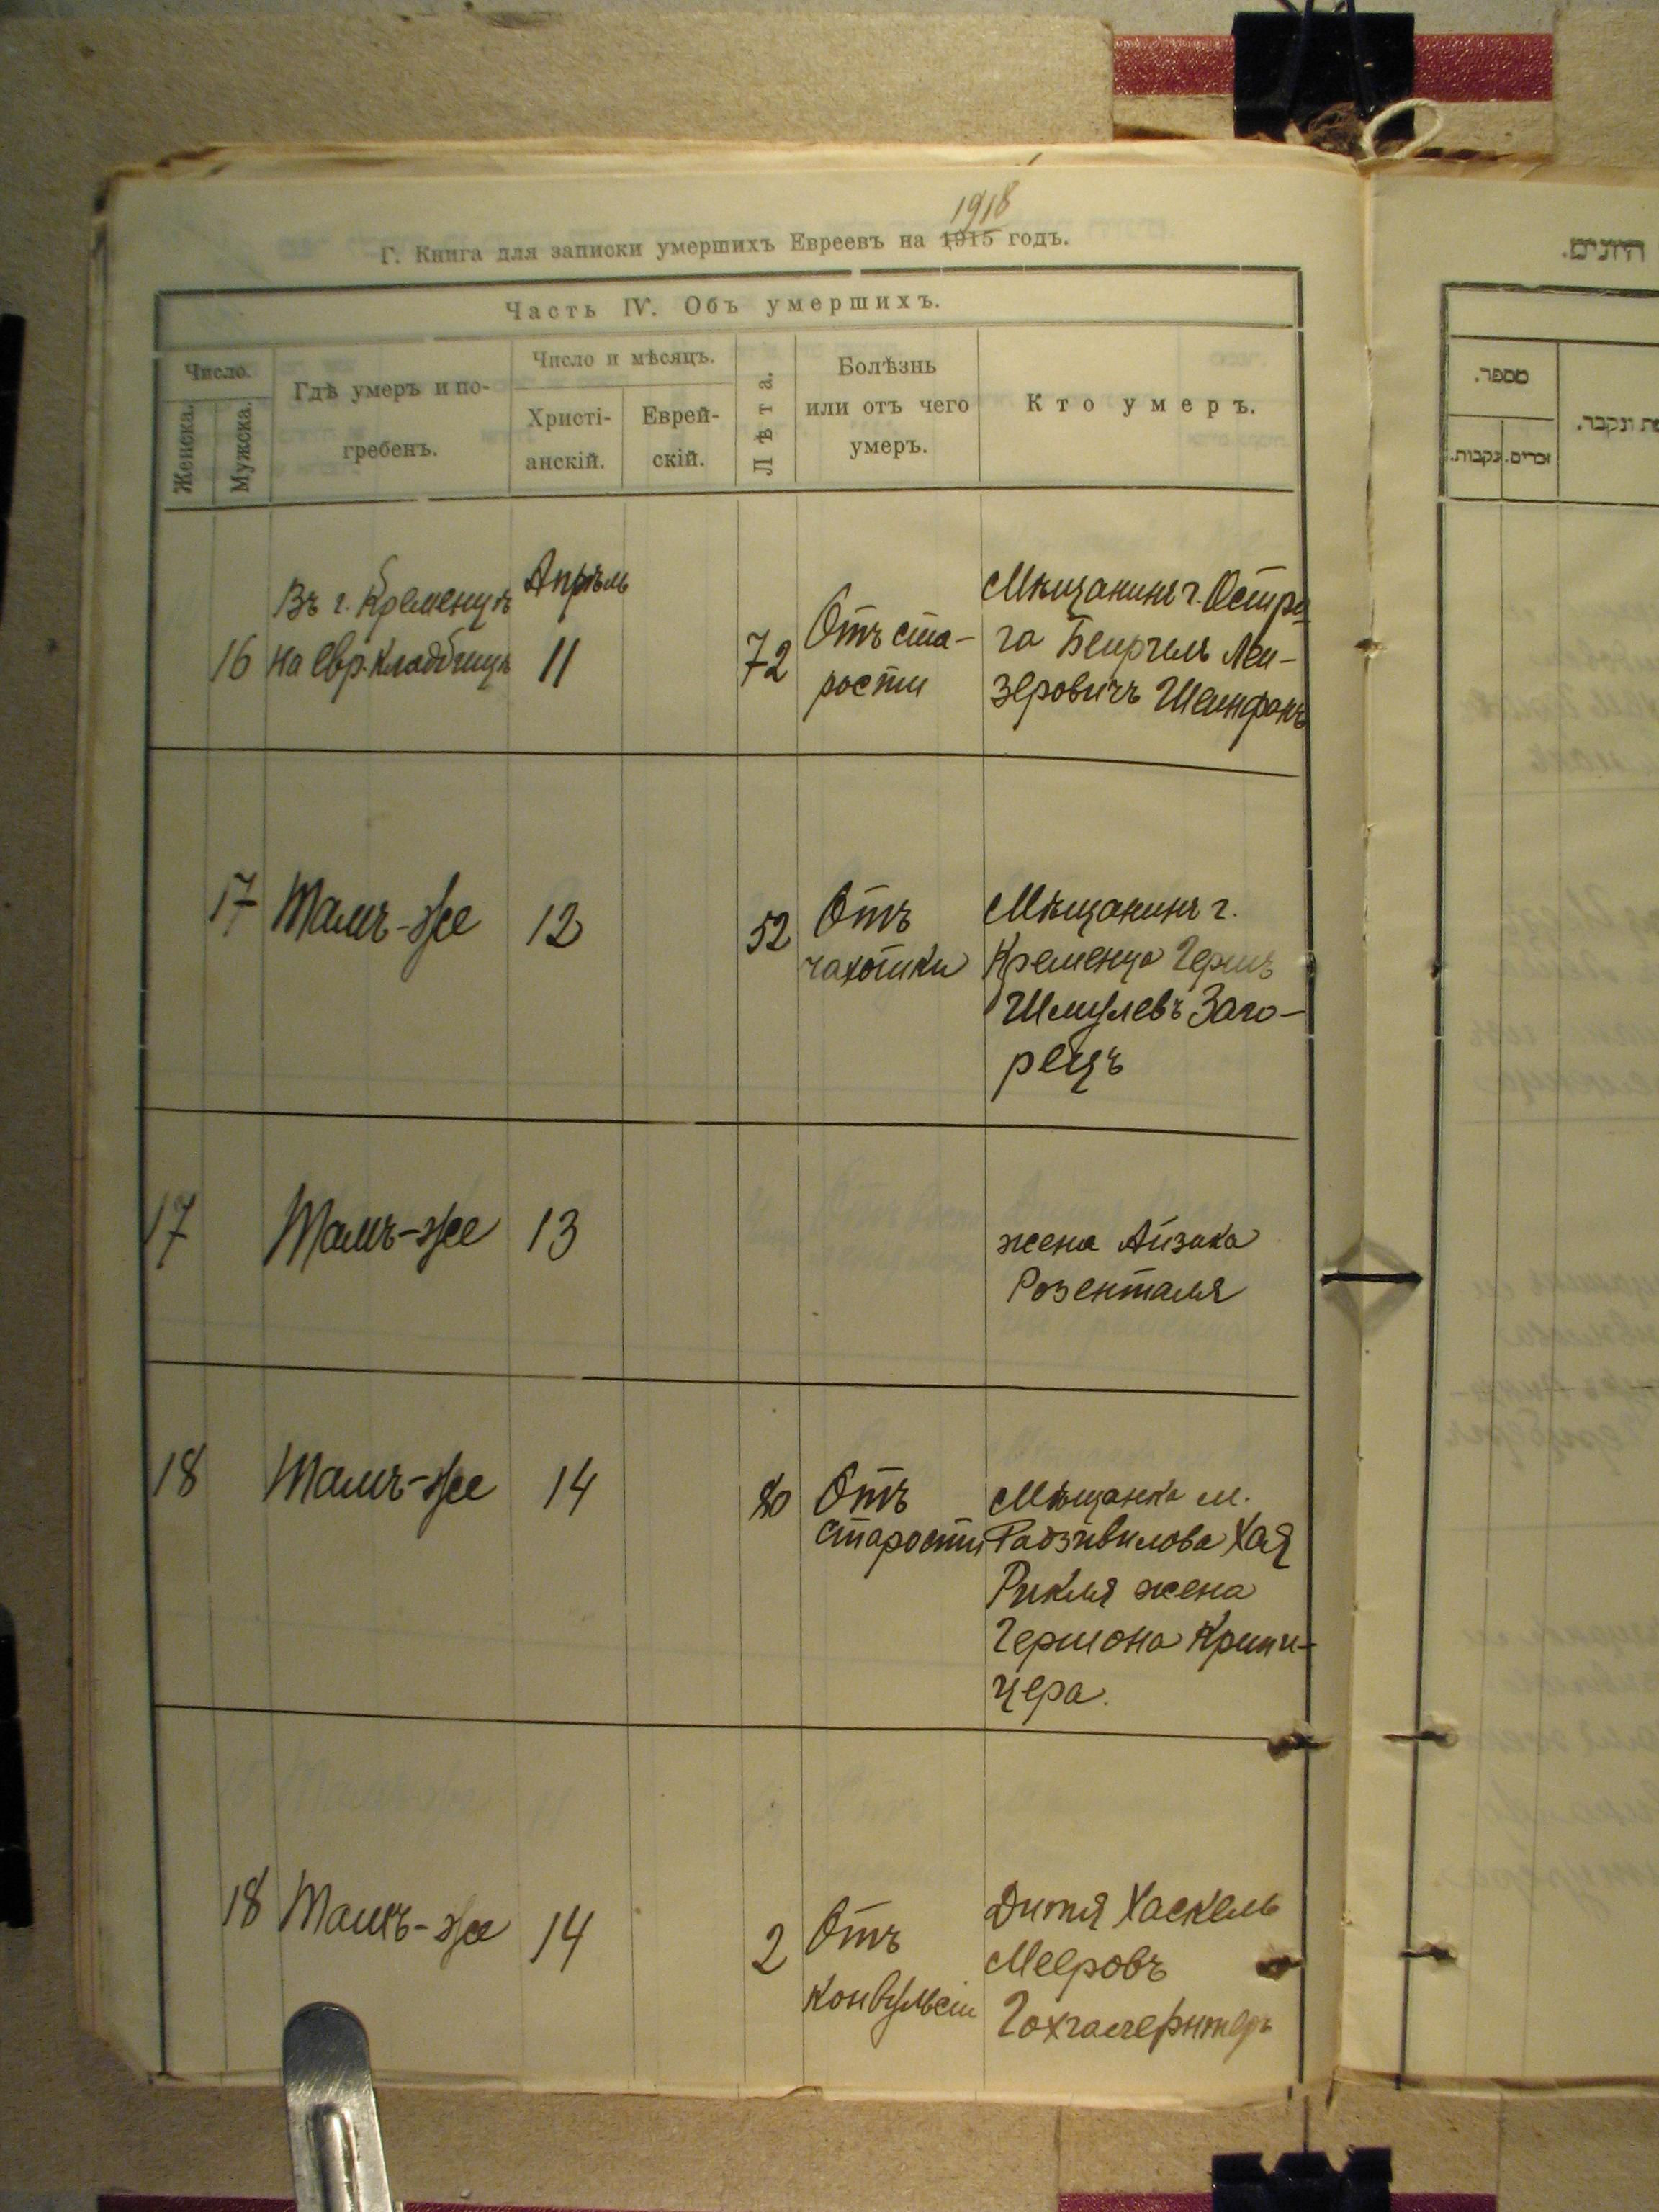 1918
Г. Книга для записки умершихъ Евреевъ на 1915 годъ.
Часть IV. Объ умершихъ.
Число.
Женска.
Мужска.
Гдѣ умеръ и по-
гребенъ.
Число и мѣсяцъ.
Христі-
анскій.
Еврей-
скій.
Лѣта.
Болѣзнь
или отъ чего
умеръ.
Кто умеръ.
16
Въ г. Кременцѣ
на евр. кладбищѣ
Апрѣль
11
72
Отъ ста-
рости
Мѣщанинъ г. Остро
га Лей-
зеровичъ
17
Тамъ-же
12
52
Отъ
чахотки
Мѣщанинъ г.
Кременца Гершъ
Шмулевъ Заго-
рецъ
17
Тамъ-же
13
жена Айзика
Розенталя
18
Тамъ-же
14
80
Отъ
старости
Мѣщанка м.
Радзивилова Хая
Рикля жена
Гершона
18
Тамъ-же
14
2
Отъ
конвульсіи
Дитя Хаскель
Мееровъ
היתים.
מספר.
נקבות.
זכרים.
ונקבר.